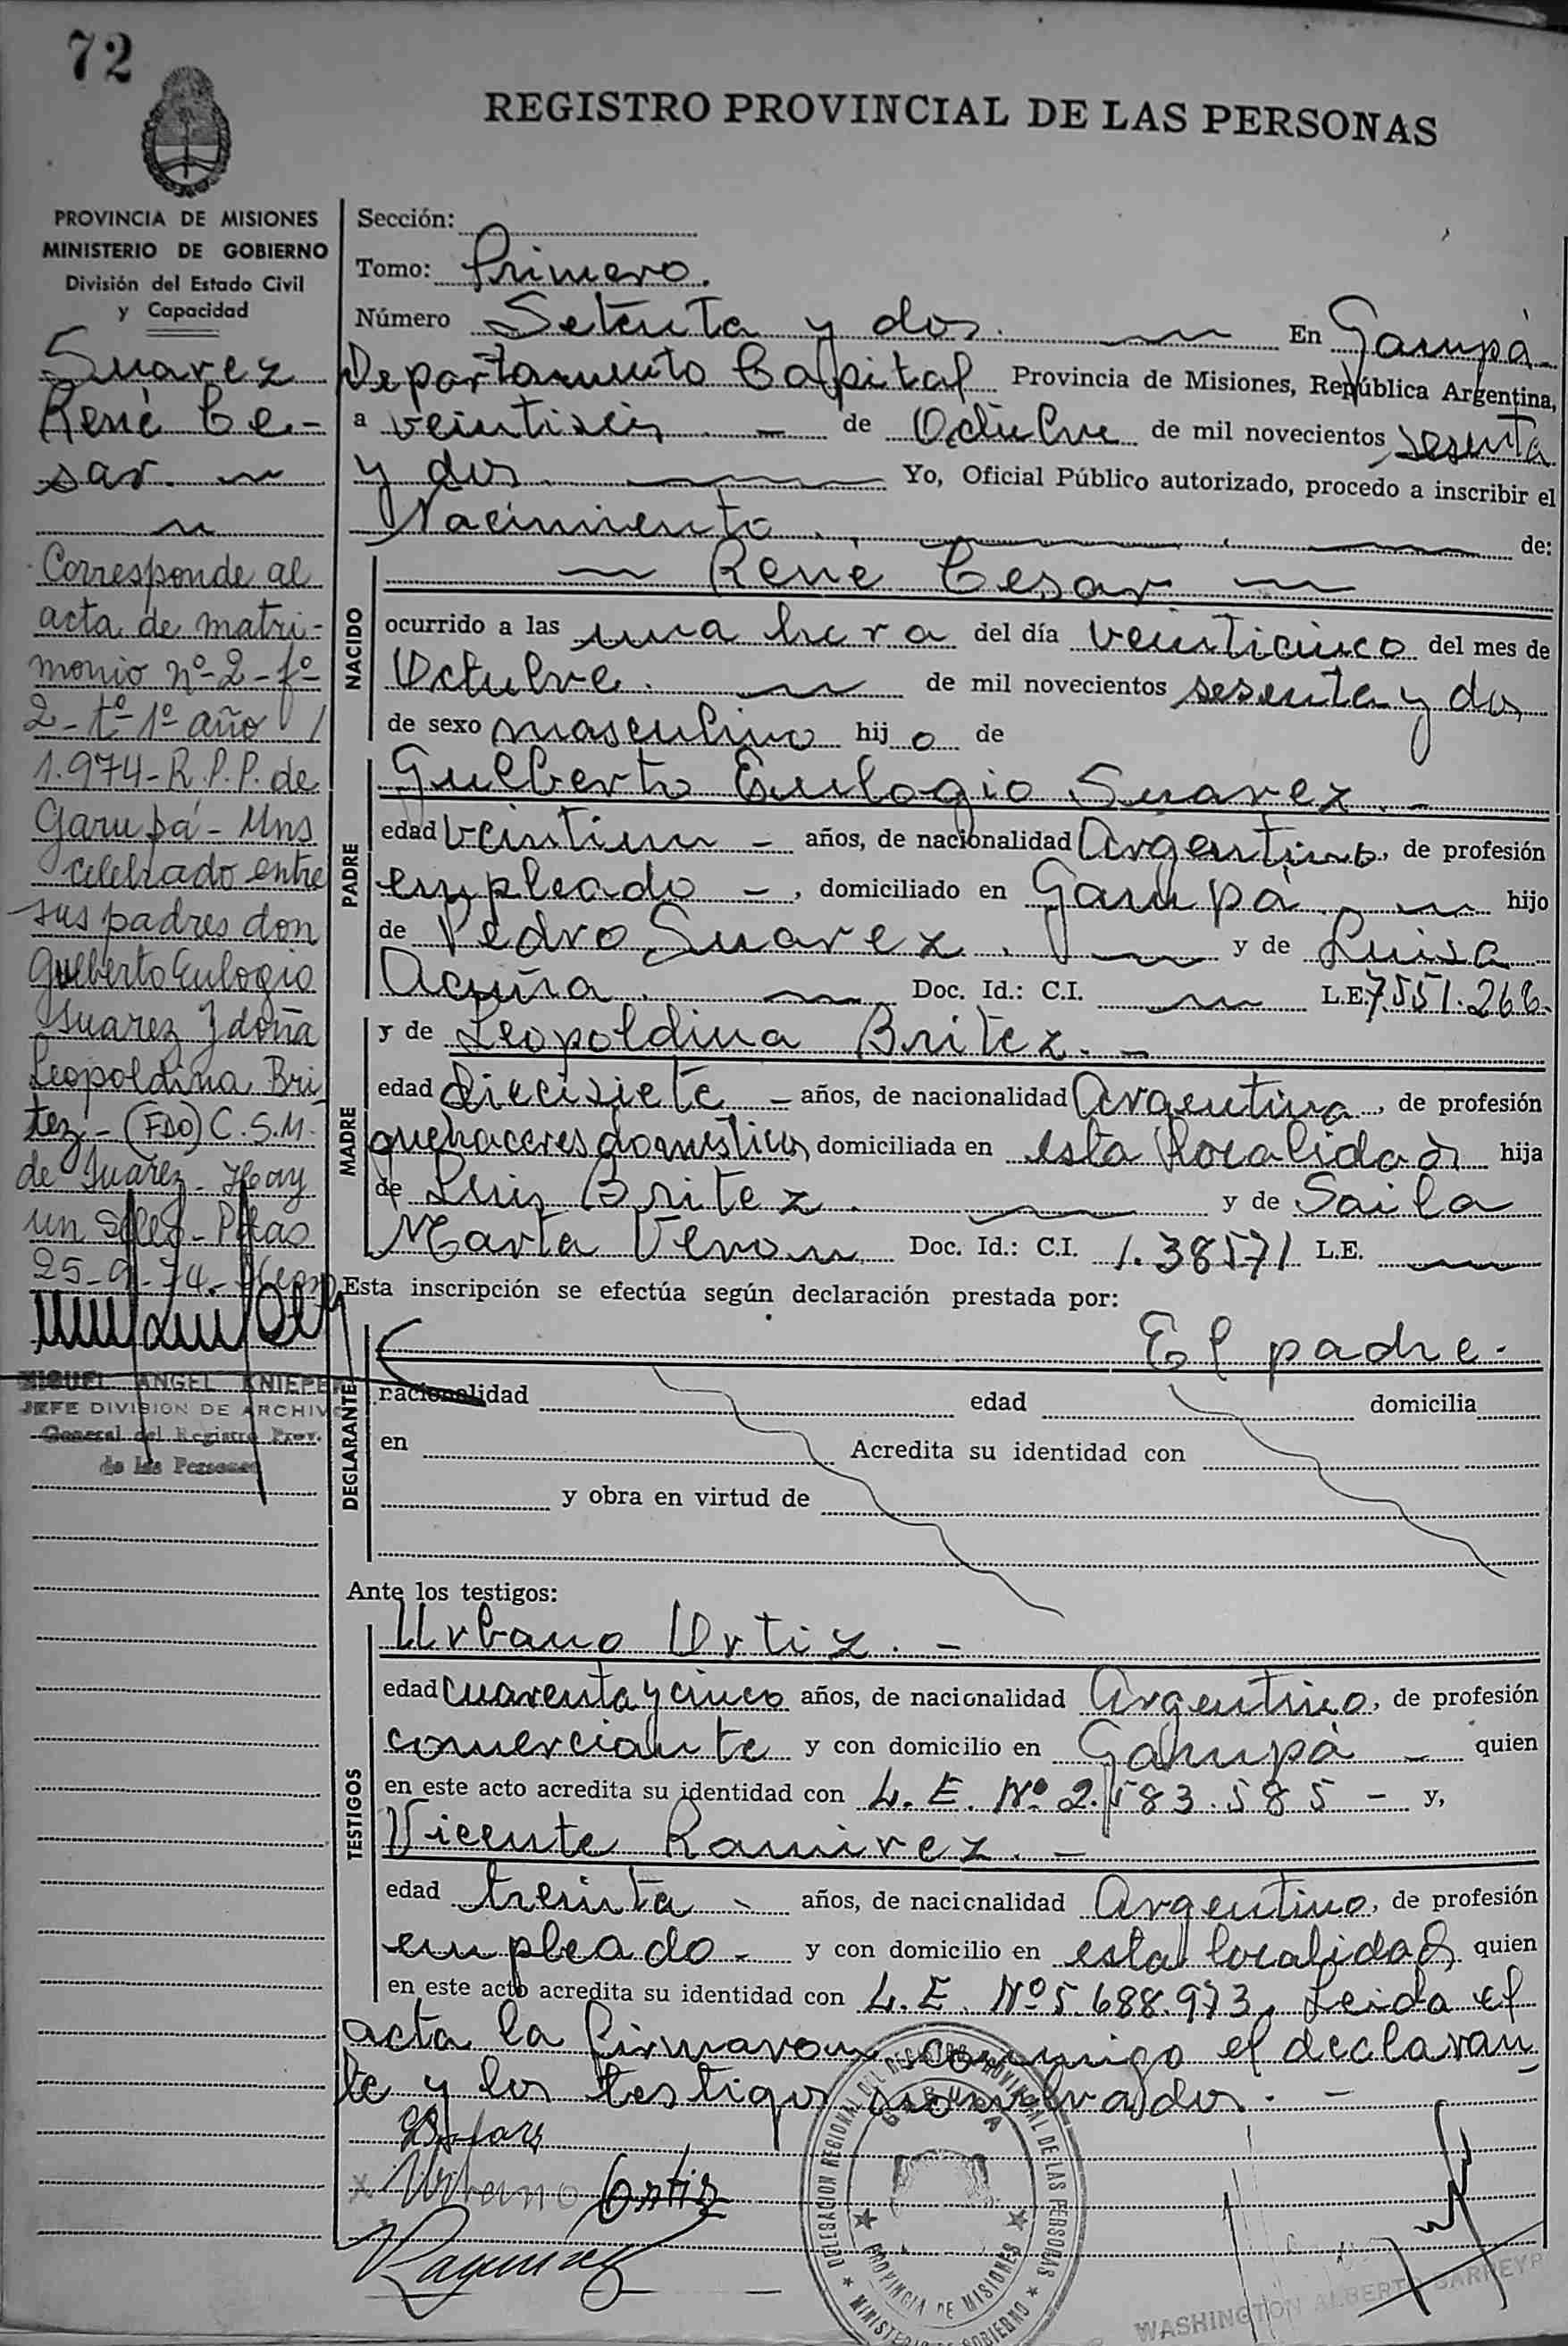 72
REGISTRO PROVINCIAL DE LAS PERSONAS
PROVINCIA DE MISIONES
MINISTERIO DE GOBIERNO
División del Estado Civil
y Capacidad
Suarez
René Ce-
sar.
Corresponde al
acta de matri-
monio nº 2 - fº
2 - tº 1º año
1.974 - R.P.P. de
Garupá - Mns
celebrado entre
sus padres don
Guelberto Eulogio
Suarez y doña
Leopoldina Bri
tez - (FDO) C.S.M.
de Suárez - Hay
un sello - Pdas
25-9-74.
MIGUEL ANGEL KNIEPE
JEFE DIVISION DE ARCHIVO
General del Registro Prov.
de las Personas
Sección:
Tomo: Primero.
Número Setenta y dos. En Garupá
Departamento Capital Provincia de Misiones, República Argentina,
a veintiseis - de Octubre de mil novecientos sesenta
y dos. Yo, Oficial Público autorizado, procedo a inscribir el
Nacimiento. de:
René Cesar
NACIDO
ocurrido a las una hora del día veinticinco del mes de
Octubre. de mil novecientos sesenta y dos
de sexo masculino hij o de
PADRE
Guelberto Eulogio Suarez. -
edad veintiun - años, de nacionalidad Argentino, de profesión
empleado -, domiciliado en Garupá. hijo
de Pedro Suarez. y de Luisa
Acuña. Doc. Id.: C.I. L.E. 7.551.266.
MADRE
y de Leopoldina Britez. -
edad diecisiete - años, de nacionalidad Argentina, de profesión
quehaceres domesticos domiciliada en esta localidad hija
de Luis Britez. y de Saila
Marta Doc. Id.: C.I. 1.38571 L.E.
Esta inscripción se efectúa según declaración prestada por:
DECLARANTE
El padre.
nacionalidad edad domicilia
en Acredita su identidad con
y obra en virtud de
Ante los testigos:
TESTIGOS
Urbano Ortiz. -
edad cuarenta y cinco años, de nacionalidad Argentino, de profesión
comerciante y con domicilio en Garupá - quien
en este acto acredita su identidad con L.E. Nº 2.583.585 - y,
Vicente Ramirez. -
edad treinta - años, de nacionalidad Argentino, de profesión
empleado - y con domicilio en esta localidad quien
en este acto acredita su identidad con L.E. Nº 5.688.973, Leida el
acta la firmaron conmigo el declaran
te y los testigos nombrados. -
Urbano Ortiz
Ramirez
DELEGACION REGIONAL DEL REGISTRO PROVINCIAL DE LAS PERSONAS
GARUPA
PROVINCIA DE MISIONES
MINISTERIO DE GOBIERNO
WASHINGTON ALBERTO BARREYRO